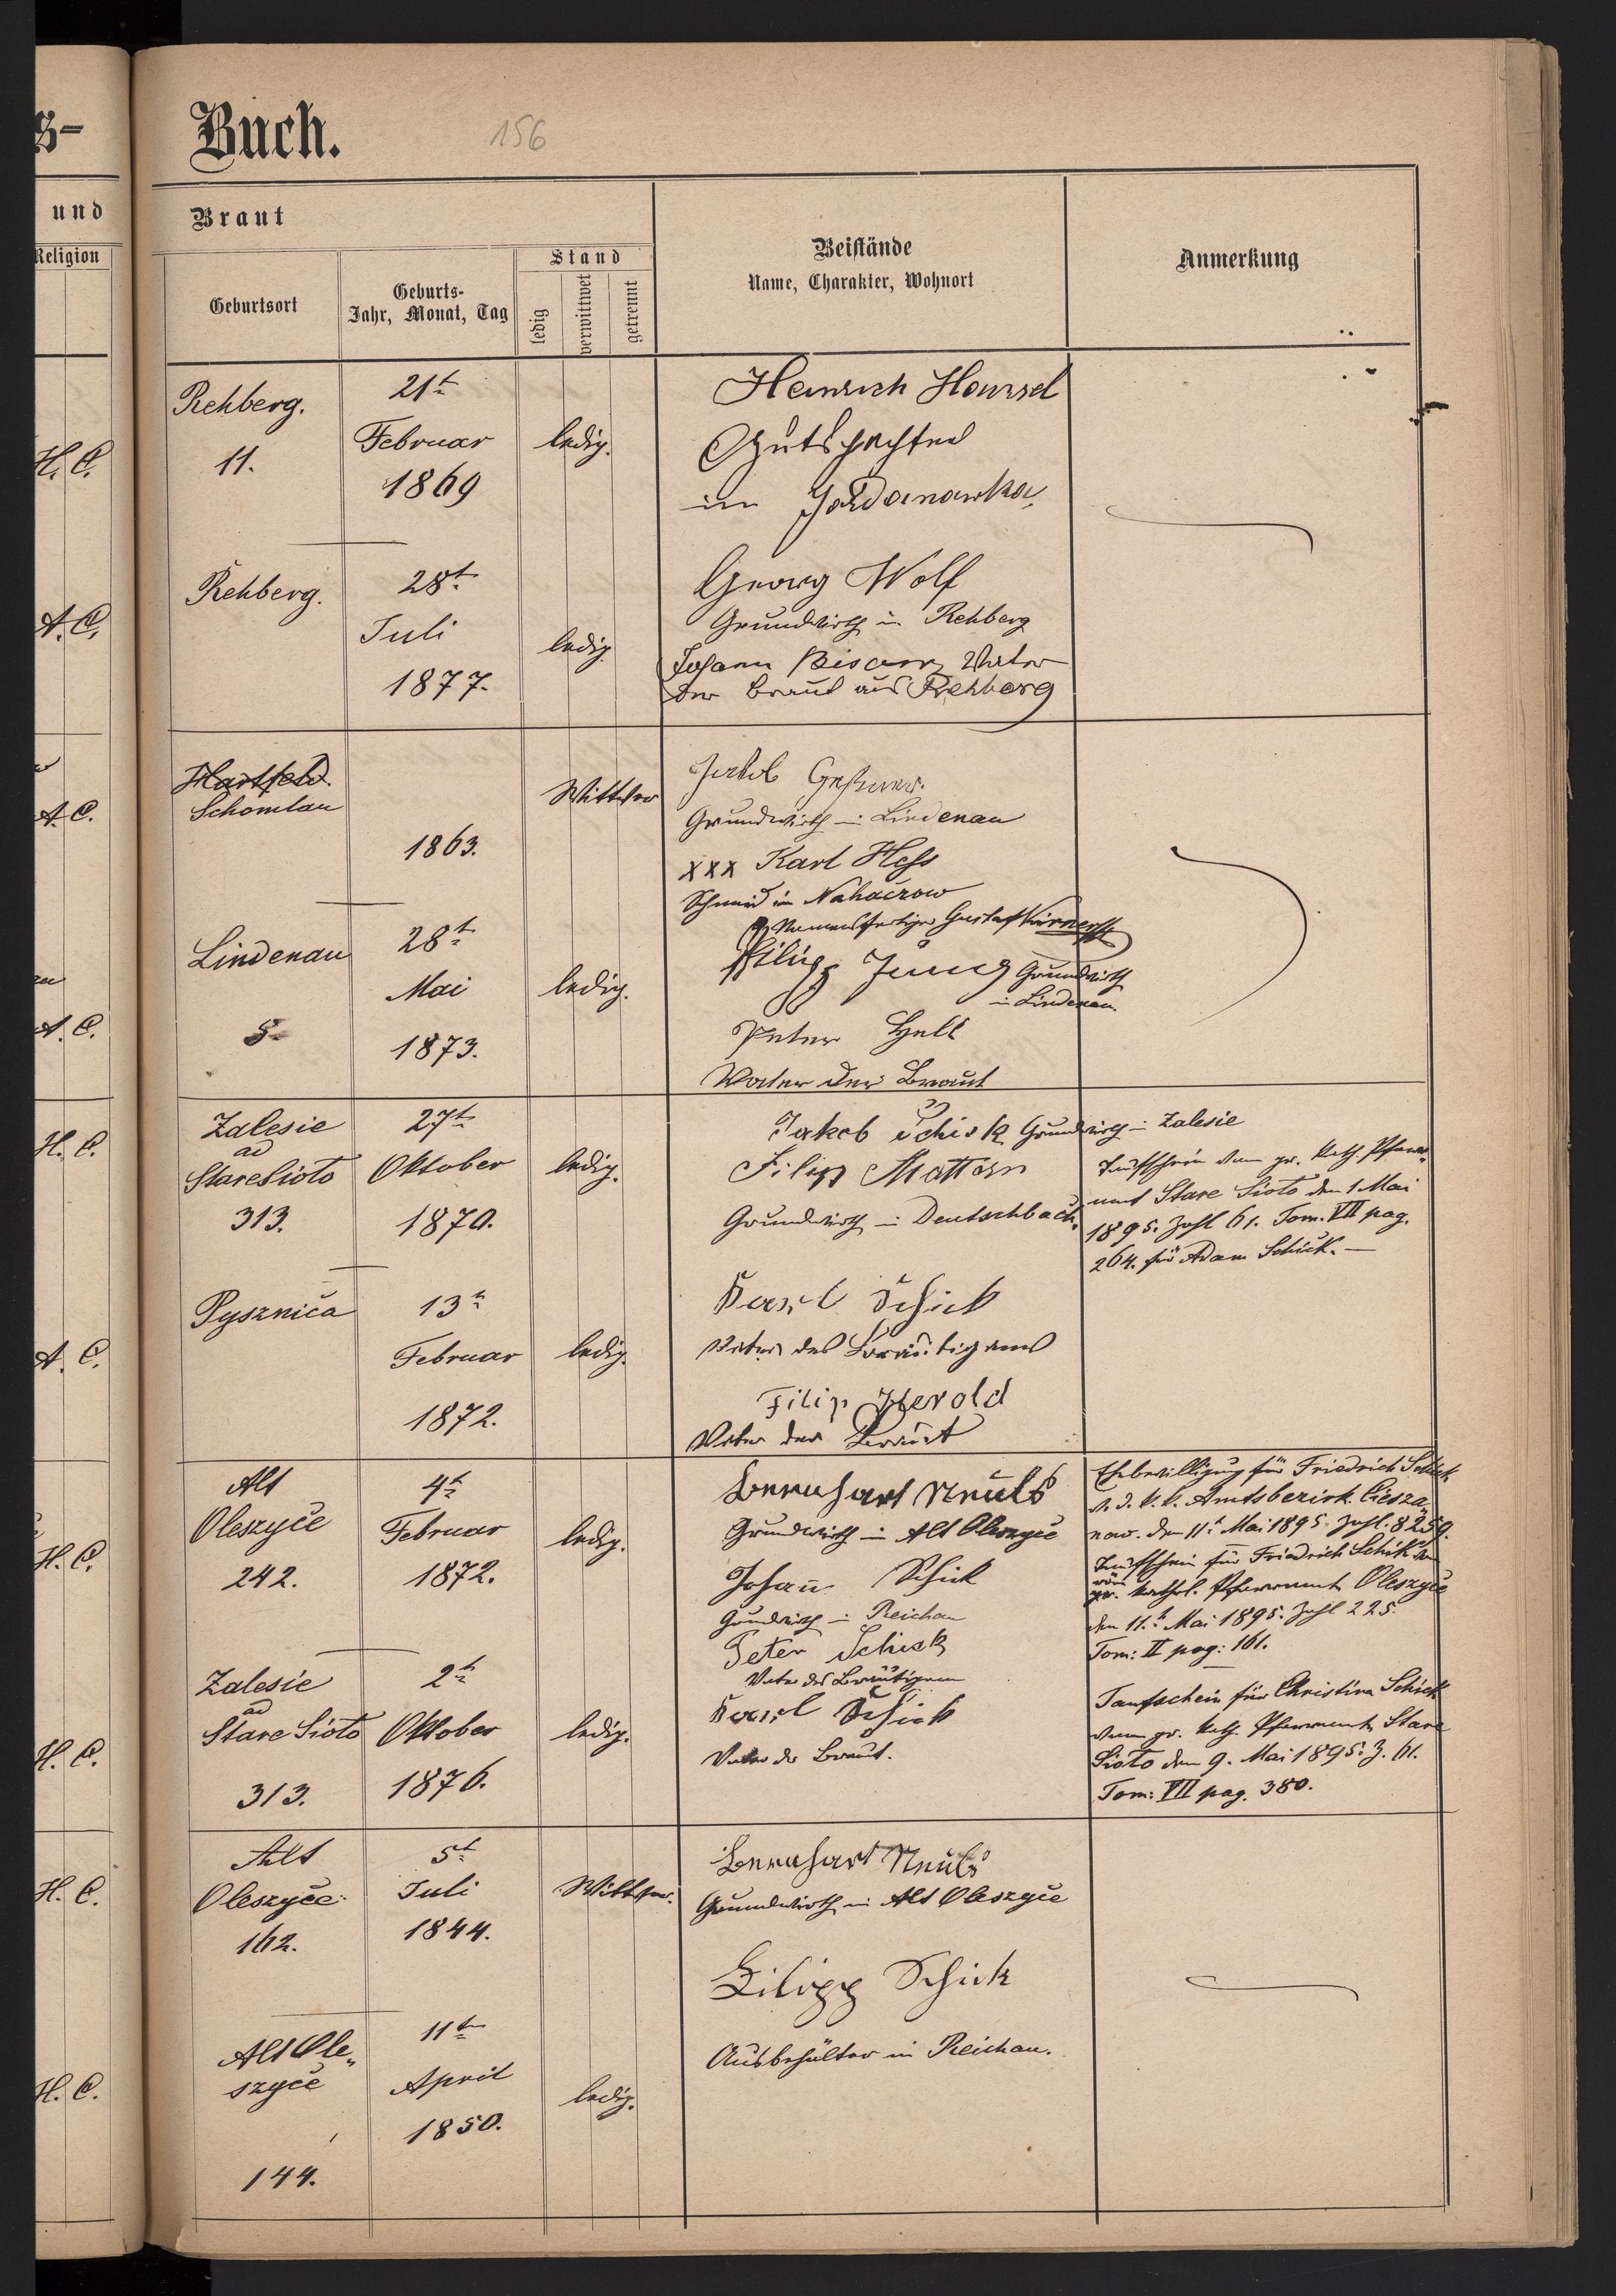 s-
Buch.
156
und
Braut
Religion
Geburtsort
Geburts-
Jahr, Monat, Tag
Stand
ledig
verwittwet
getrennt
Beistände
Name, Charakter, Wohnort
Anmerkung
H. C.
Rehberg.
11.
21t
Februar
1869
ledig.
Heinrich
Gutspächter
in Jordanowka
A. C.
Rehberg.
28t
Juli
1877.
ledig
Georg Wolf
Grundwirth in Rehberg
Johann Bisanz Vater
der Braut aus Rehberg
A. C.
Hartfeld.
Schomlau
1863.
Wittwer
Jakob
Grundwirth in Lindenau
xxx Karl Hess
Schmied in Nahaczow
Namensfertiger Gustaf
A. C.
Lindenau
28t
Mai
1873.
ledig.
Filipp Jung Grundwirth
in Lindenau.
Peter
Vater der Braut
H. C.
Zalesie
ad
Stare Sioto
313.
27t
Oktober
1870.
ledig.
Jakob Schick Grundwirth in Zalesie
Filipp Mattern
Grundwirth in Deutschbach.
Taufschein vom gr. kath. Pfarr„
amt Stare Sioto den 1. Mai
1895. Zahl 61. Tom. VII pag.
264. für Adam Schick. —
A. C.
Pysznica
13t
Februar
1872.
ledig.
Karl Schick
Vater des Bräutigams
Filip Herold
Vater der Braut
H. C.
Alt
Oleszyce
242.
4t
Februar
1872.
ledig.
Bernhart Neuls
Grundwirth in Alt Oleszyce
Johann Schick
Grundwirth in Reichau
Ehebewilligung für Friedrich Schick
v. d. k. k. Amtsbezirk Ciesza„
now. den 11t Mai 1895. Zahl. 8259.
Taufschein für Friedrich Schik vom
röm
gr. kathol. Pfarramt Oleszyce
den 11.t Mai 1895. Zahl 225.
Tom: II pag: 161.
H. C.
Zalesie
ad
Stare Sioto
313.
2t
Oktober
1876.
ledig.
Peter Schick
Vater des Bräutigam
Karl Schick
Vater der Braut.
Taufschein für Christina Schick
vom gr. kath. Pfarramt Stare
Sioto den 9. Mai 1895. Z. 61.
Tom: VII pag. 380.
H. C.
Alt
Oleszyce
162.
5t
Juli
1844.
Wittwer.
Bernhart Neuls
Grundwirth in Alt Oleszyce
H. C.
Alt Ole„
szyce
144.
11t
April
1850.
ledig.
Filipp Schick
Ausbehälter in Reichau.